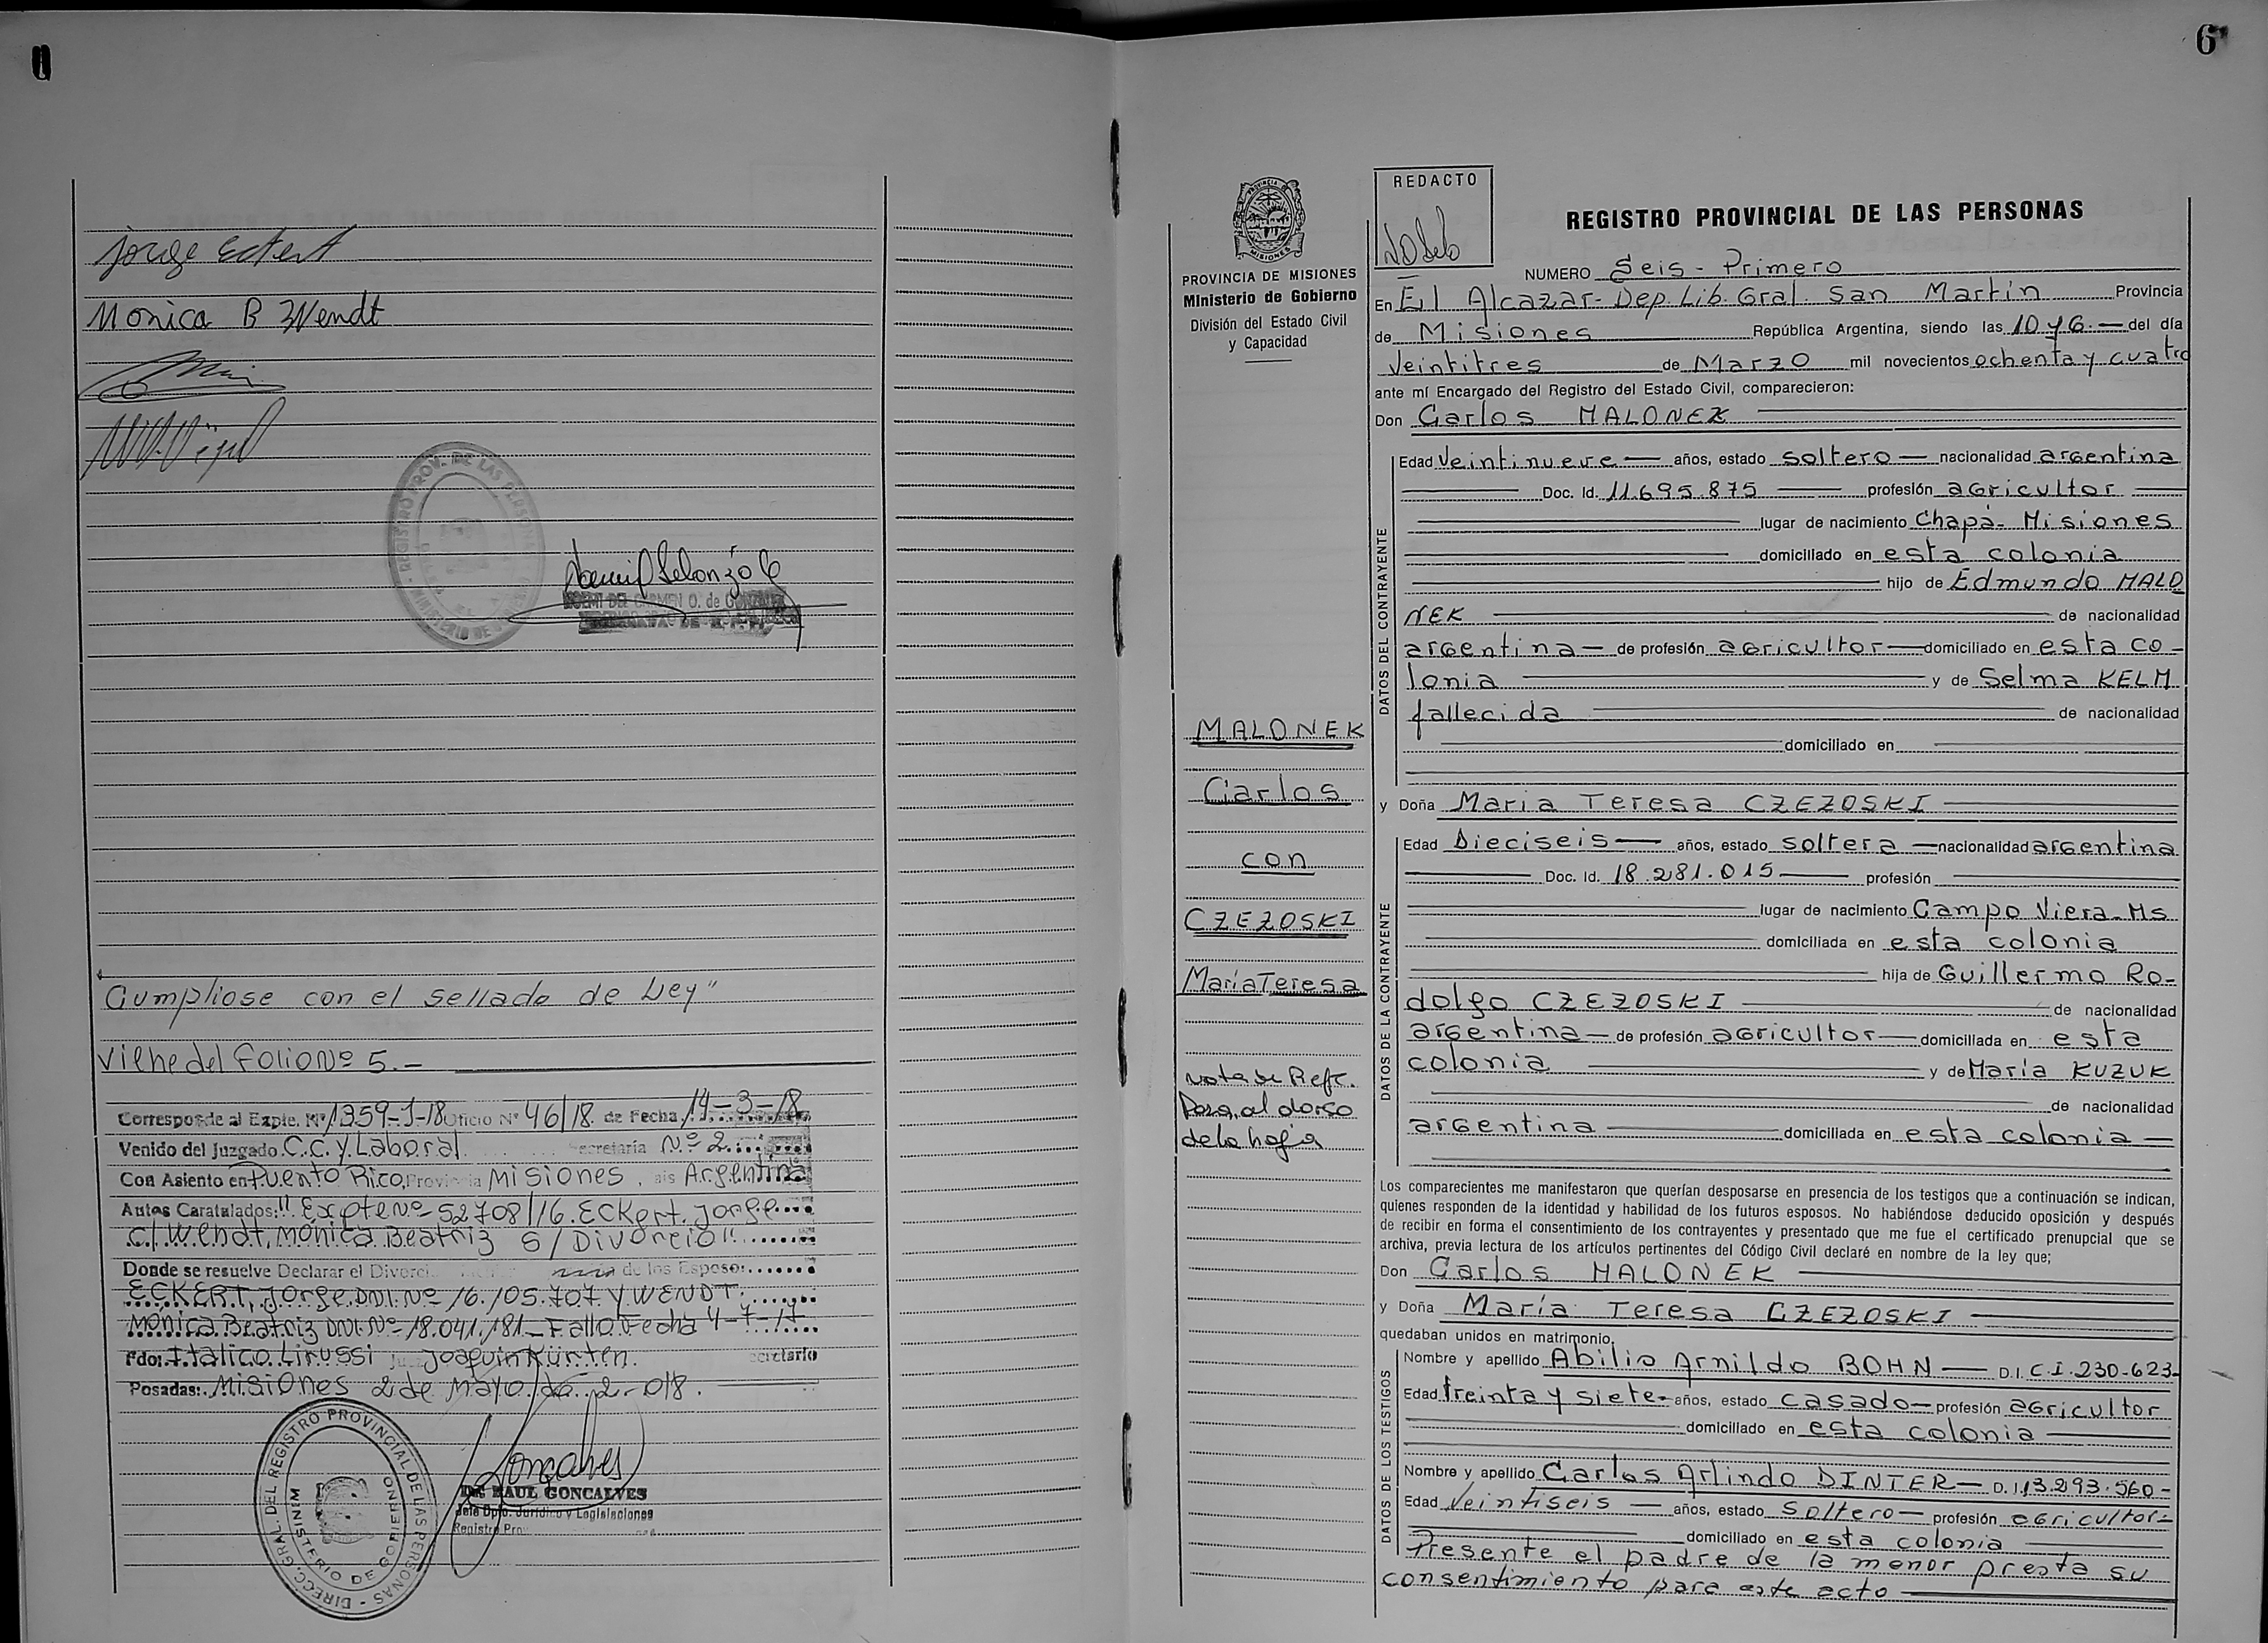 Jorge Eckert
Monica B Wendt
REGISTRO PROV. DE LAS PERSONAS
NOEMI DEL CARMEN O. de GONZALEZ
"Cumpliose con el sellado de Ley"
Viene del Folio Nº 5.-
Corresponde al Expte. Nº 1359-J-18 Oficio Nº 46/18. de Fecha 14-3-18
Venido del Juzgado C.C. y Laboral Secretaría Nº 2
Con Asiento en Puerto Rico, Provincia Misiones, País Argentina
Autos Caratulados: "Expte Nº 52708/16. Eckert. Jorge
c/ Wendt, Mónica Beatriz S/ Divorcio"
Donde se resuelve Declarar el Divorcio de los Esposo:
ECKERT, Jorge. DNI. Nº 16.105.707 y WENDT.
Mónica Beatriz DNI. Nº 18.041.181_ Fallo Fecha 4-7-17
Fdo: Italico Lirussi, Joaquin Kürten. Secretario
Posadas: Misiones 2 de Mayo de 2.018.
DIRECC. GRAL. DEL REGISTRO PROVINCIAL DE LAS PERSONAS
MINISTERIO DE GOBIERNO
Goncalves
Dr. RAUL GONCALVES
Jefe Dpto. Jurídico y Legislaciones
Registro Pro
6
PROVINCIA DE MISIONES
Ministerio de Gobierno
División del Estado Civil
y Capacidad
MALONEK
Carlos
con
CZEZOSKI
María Teresa
Nota de Refe.
Pasa, al dorso
de la hoja
REDACTO
REGISTRO PROVINCIAL DE LAS PERSONAS
NUMERO Seis - Primero
En El Alcazar- Dep. Lib. Gral. San Martín Provincia
de Misiones República Argentina, siendo las 10 y 6.- del día
Veintitres de Marzo mil novecientos ochenta y cuatro
ante mí Encargado del Registro del Estado Civil, comparecieron:
Don Carlos MALONEK
DATOS DEL CONTRAYENTE
Edad Veintinueve años, estado soltero nacionalidad argentina
Doc. Id. 11.695.875 profesión agricultor
lugar de nacimiento Chapá- Misiones
domiciliado en esta colonia
hijo de Edmundo MALO
NEK de nacionalidad
argentina de profesión agricultor domiciliado en esta co-
lonia y de Selma KELM
fallecida de nacionalidad
domiciliado en
y Doña María Teresa CZEZOSKI
DATOS DE LA CONTRAYENTE
Edad Dieciseis años, estado soltera nacionalidad argentina
Doc. Id. 18.281.015 profesión
lugar de nacimiento Campo Viera- Ms
domiciliada en esta colonia
hija de Guillermo Ro-
dolfo CZEZOSKI de nacionalidad
argentina de profesión agricultor domiciliada en esta
colonia y de María KUZUK
de nacionalidad
argentina domiciliada en esta colonia
Los comparecientes me manifestaron que querían desposarse en presencia de los testigos que a continuación se indican,
quienes responden de la identidad y habilidad de los futuros esposos. No habiéndose deducido oposición y después
de recibir en forma el consentimiento de los contrayentes y presentado que me fue el certificado prenupcial que se
archiva, previa lectura de los artículos pertinentes del Código Civil declaré en nombre de la ley que;
Don Carlos MALONEK
y Doña María Teresa CZEZOSKI
quedaban unidos en matrimonio.
DATOS DE LOS TESTIGOS
Nombre y apellido Abilio Arnildo BOHN D.I. C.I. 230-623-
Edad treinta y siete- años, estado casado profesión agricultor
domiciliado en esta colonia
Nombre y apellido Carlos Arlindo DINTER D.I. 13.293.560-
Edad Veintiseis años, estado soltero profesión agricultor-
domiciliado en esta colonia
Presente el padre de la menor presta su
consentimiento para este acto